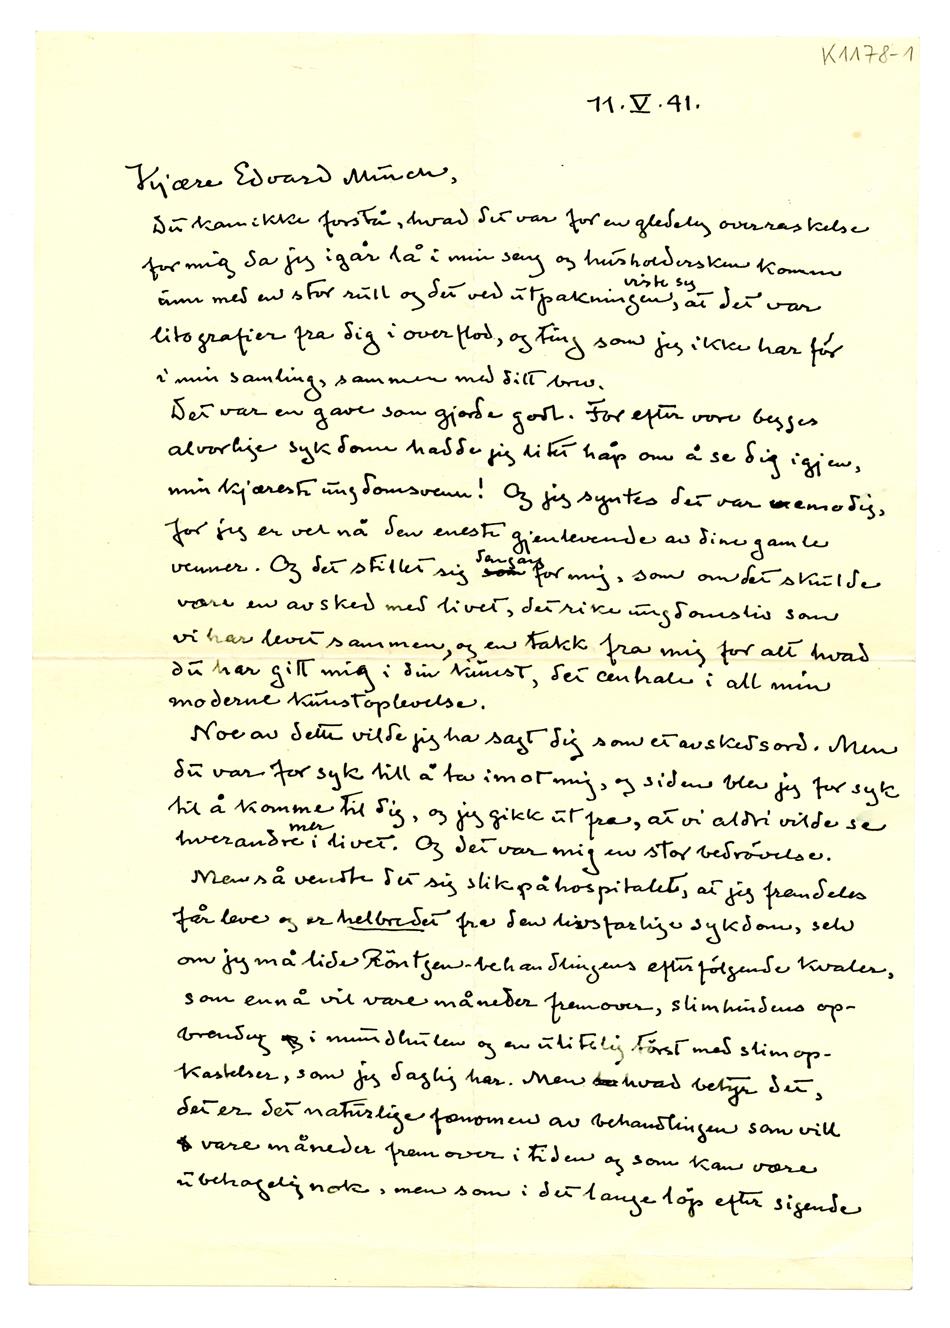 K1178-1
11.V.41.
Kjære Edvard Munch,
Du kan ikke forstå, hvad det var for en gledelig overraskelse
for mig da jeg igår lå i min seng og husholdersken komm
inn med en stor rull og det ved utpakningen viste sig, at det var
litografier fra dig i overflod, og ting som jeg ikke har før
i min samling, sammen med ditt brev.
Det var en gave som gjorde godt. For efter vore begges
alvorlige sykdomm hadde jeg litet håp om å se dig igjen,
min kjæreste ungdomsvenn! Og jeg syntes det var vemodig,
for jeg er vel nå den eneste gjenlevende av dine gamle
venner. Og det stillet sig som dengang for mig, som om det skulde
være en avsked med livet, det rike ungdomsliv som
vi har levet sammen, og en takk fra mig for alt hvad
du har gitt mig i din kunst, det centrale i all min
moderne kunstoplevelse.
Noe av dette vilde jeg ha sagt dig som et avskedsord. Men
du var for syk till å ta imot mig, og siden blev jeg for syk
til å komme til dig, og jeg gikk ut fra, at vi aldri vilde se
hverandre mer i livet. Og det var mig en stor bedrøvelse.
Men så vendte det sig slik på hospitalet, at jeg fremdeles
får leve og er helbredet fra den livsfarlige sykdom, selv
om jeg må lide Röntgen-behandlingens efterfølgende kvaler,
som ennå vil vare måneder fremover, slimhindens op-
brending og i mundhulen og en ulitelig törst med slimop-
kastelser, som jeg daglig har. Men hvad betyr det,
det er det naturlige fænomen av behandlingen som vill
vare måneder fremover i tiden og som kan være
ubehagelig nok, men som i det lange løp efter sigende